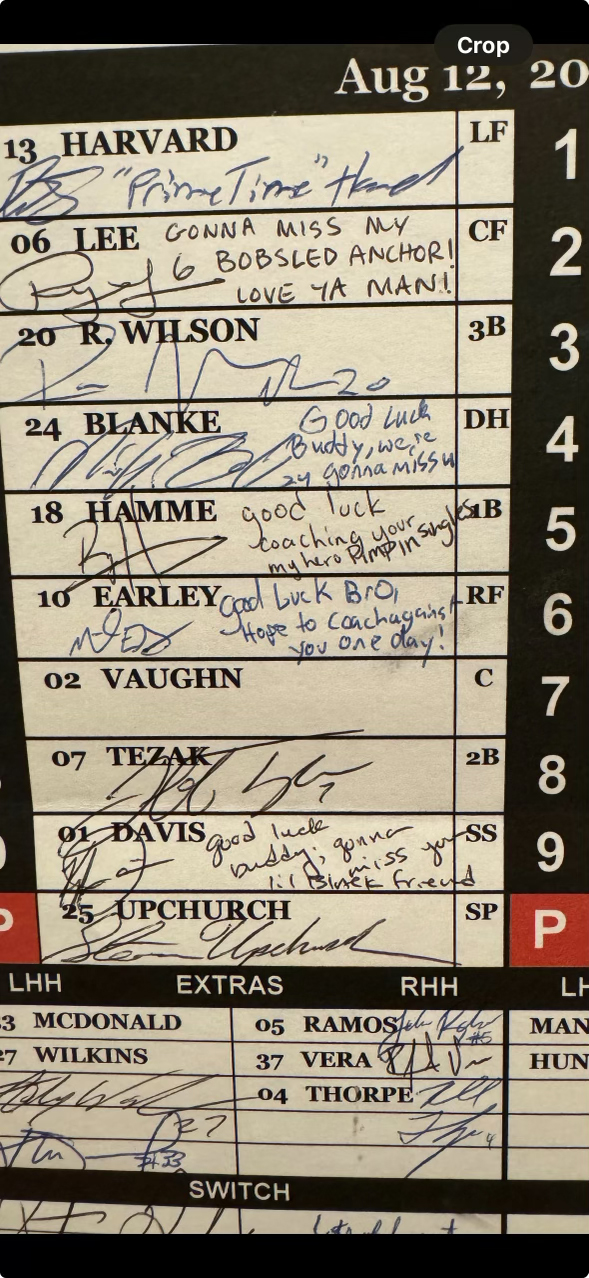 Crop
Aug 12, 20
13 HARVARD LF 1
"Prime Time"
06 LEE CF 2
GONNA MISS MY
6 BOBSLED ANCHOR!
LOVE YA MAN!
20 R. WILSON 3B 3
20
24 BLANKE DH 4
Good luck
Buddy, we're
24 gonna miss u
18 HAMME 1B 5
good luck
coaching your
my hero Pimpin singles
10 EARLEY RF 6
Good Luck Bro,
Hope to Coach against
you one day!
02 VAUGHN C 7
07 TEZAK 2B 8
7
01 DAVIS SS 9
good luck
buddy, gonna
miss your
lil Black friend
25 UPCHURCH SP P
P
LHH EXTRAS RHH LH
33 MCDONALD 05 RAMOS MAN
#5
27 WILKINS 37 VERA HUN
04 THORPE
27
4
#33
SWITCH